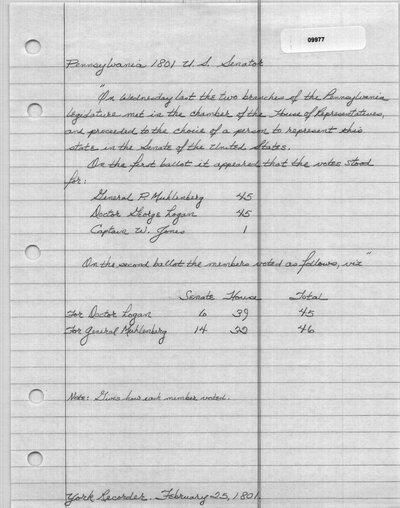 09977
Pennsylvania 1801 U.S. Senator
"On Wednesday last the two branches of the Pennsylvania
legislature met in the chamber of the House of Representatives,
and proceeded to the choice of a person to represent this
state in the Senate of the United States.
On the first ballot it appeared that the votes stood
for:
General P. Muhlenberg 45
Doctor George Logan 45
Captain W. Jones 1
On the second ballot the members voted as follows, viz"
Senate House Total
For Doctor Logan 6 39 45
For General Muhlenberg 14 32 46
Note: Gives how each member voted.
York Recorder. February 25, 1801.